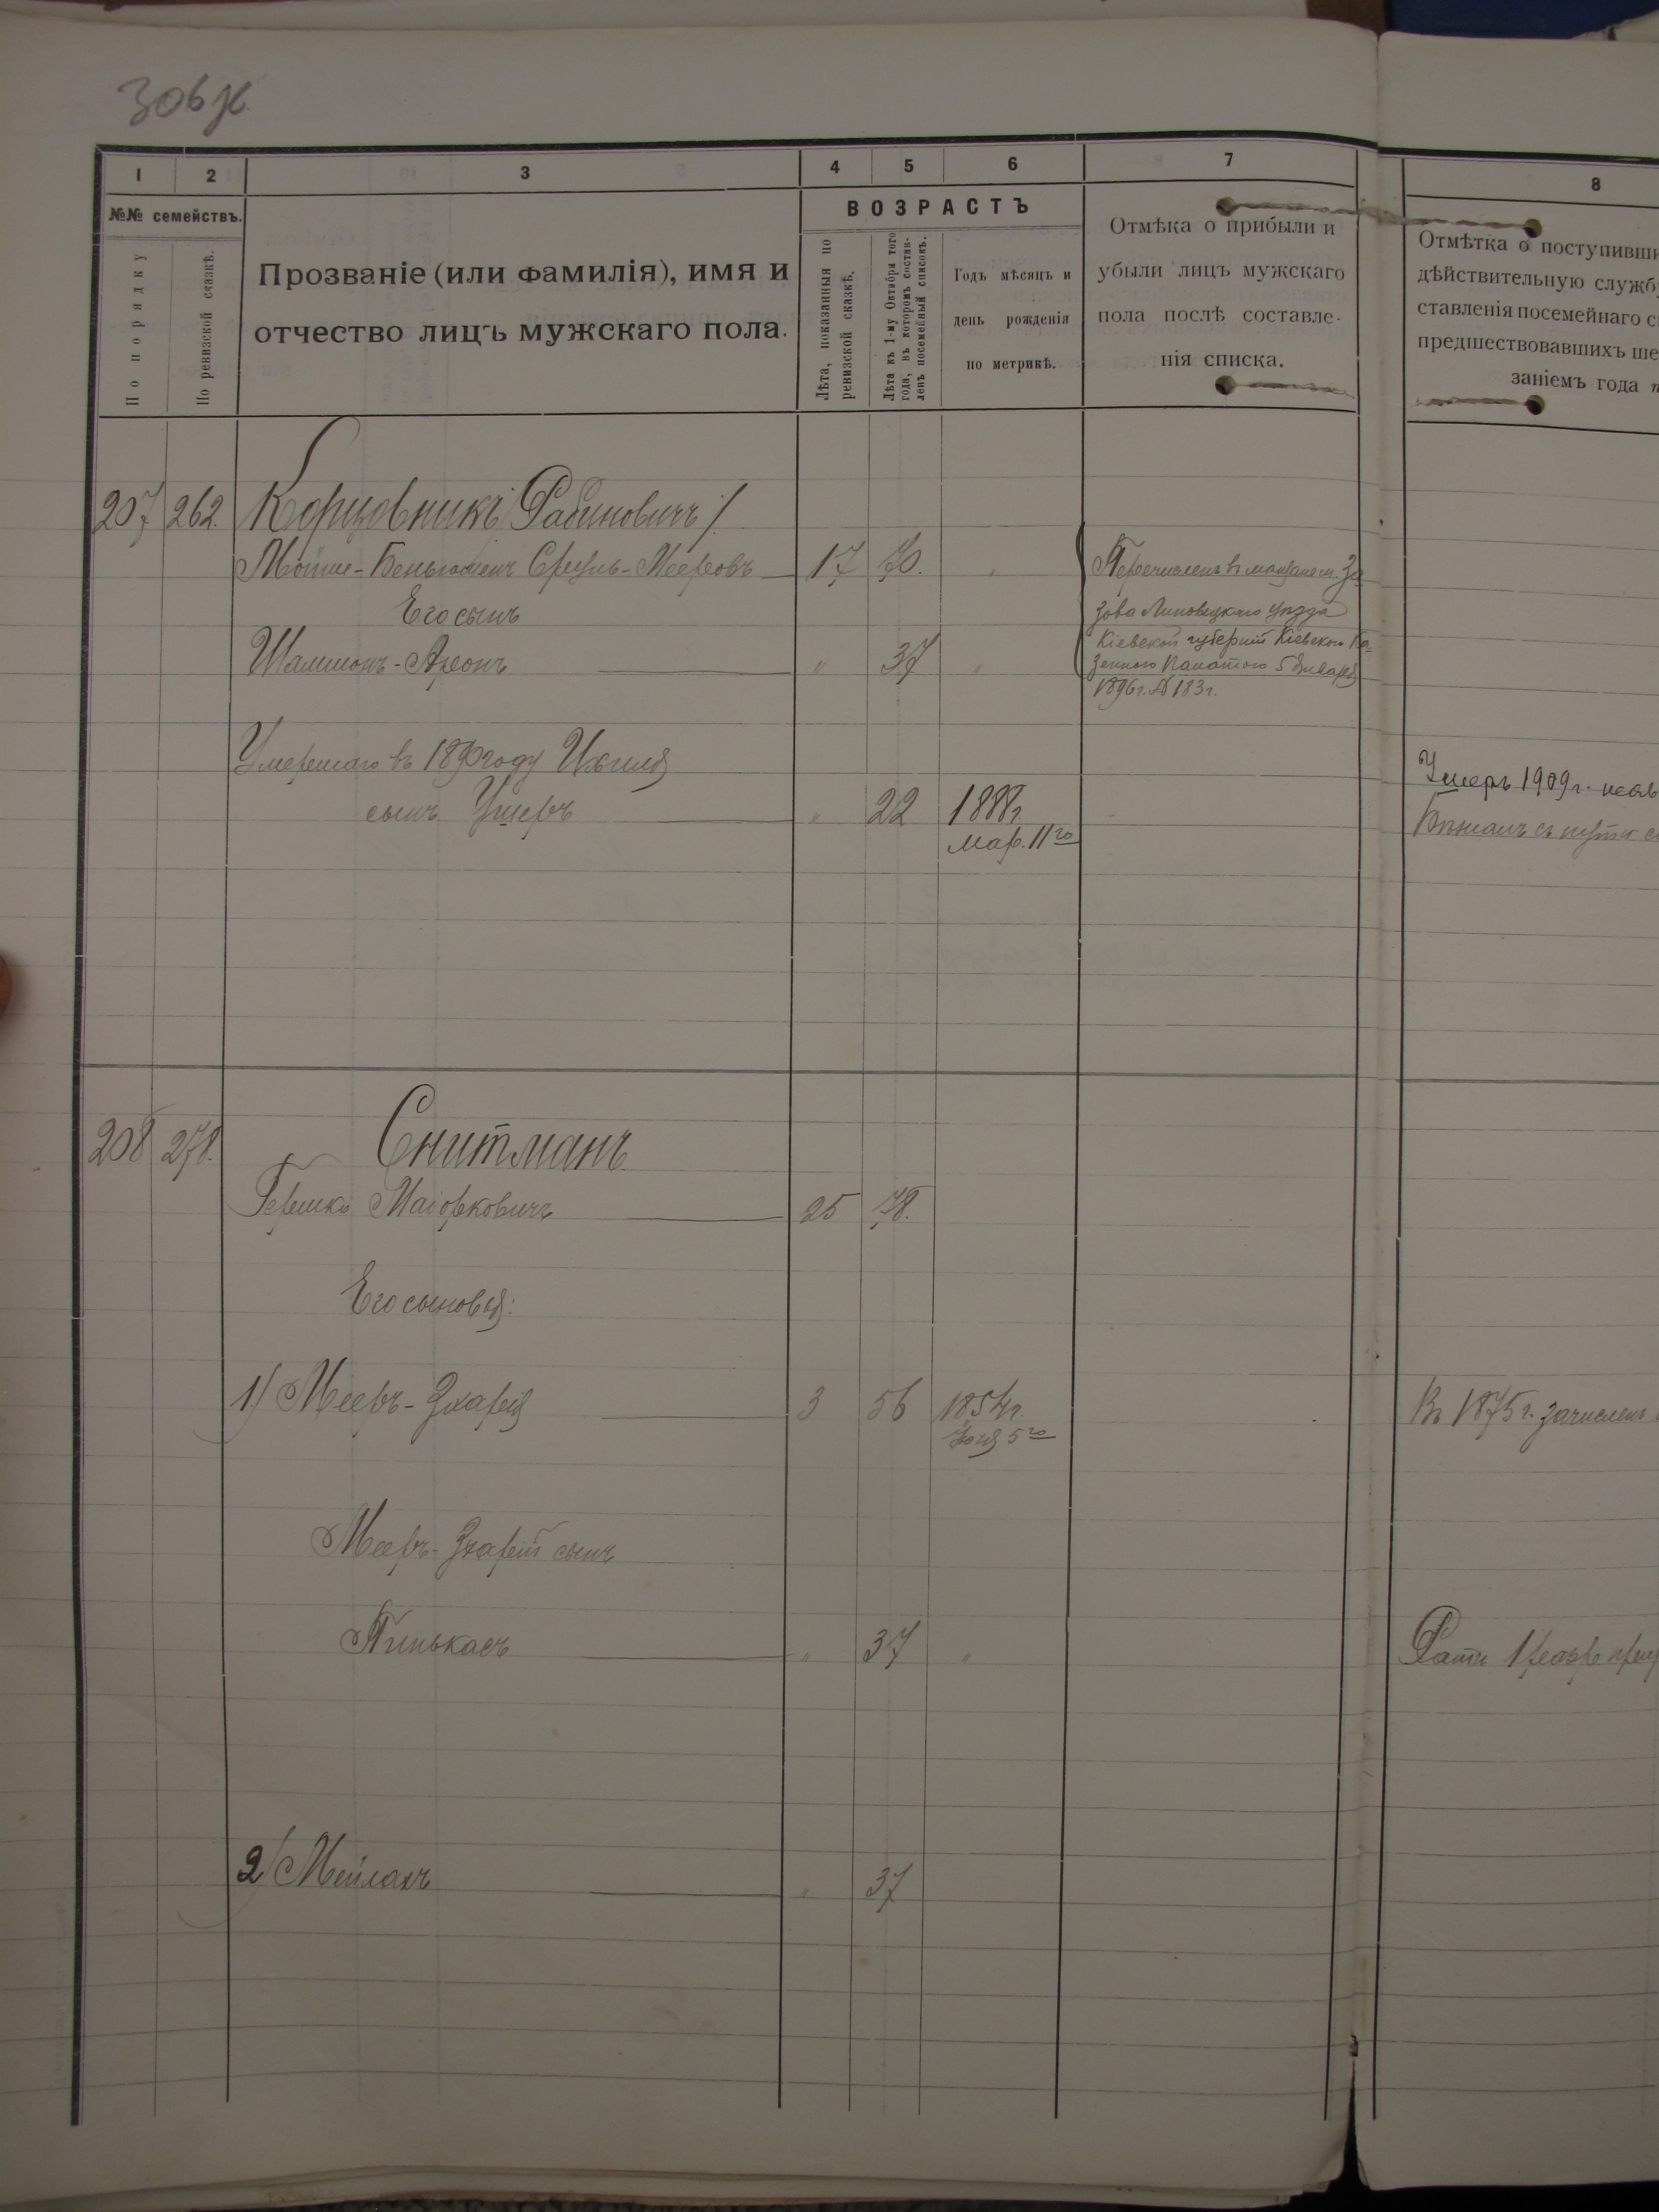 1 2 3 4 5 6 7
8
№№ семействъ.
По порядку
По ревизской сказкѣ.
Прозваніе (или фамилія), имя и
отчество лицъ мужскаго пола.
ВОЗРАСТЪ
Лѣта, показанныя по
ревизской сказкѣ.
Лѣта къ 1-му Октября того
года, въ которомъ состав-
ленъ посемейный списокъ.
Годъ мѣсяцъ и
день рожденія
по метрикѣ.
Отмѣка о прибыли и
убыли лицъ мужскаго
пола послѣ составле-
нія списка.
Отмѣтка о поступивши
дѣйствительную служб
ставленія посемейнаго с
предшествовавшихъ ше
заніемъ года
207 262. Рабиновичъ/
Сруль-Мееровъ 17 70.
Перечисленъ в
Его сынъ
зова Липовецкаго уѣзда
Кіевской губерніи Кіевской Ка-
Шамшонъ-Аронъ " 37 "
зенною Палатою 5 Января
1896 г. № 183 г.
Умершаго въ 1890 году Ихиля
сынъ Ушеръ " 22 1888 г.
мар. 11го
Умеръ 1909 г.
208 278. Снитманъ
Гершко Маіорковичъ 25 78.
Его сыновья:
1/ Мееръ-Зхарія 3 56 1854 г.
Іюня 5го
Въ 1875 г. зачисленъ
Мееръ-Зхарія сынъ
Пинькасъ " 37 "
Ратн 1 разр
2/ Мейлахъ " 37